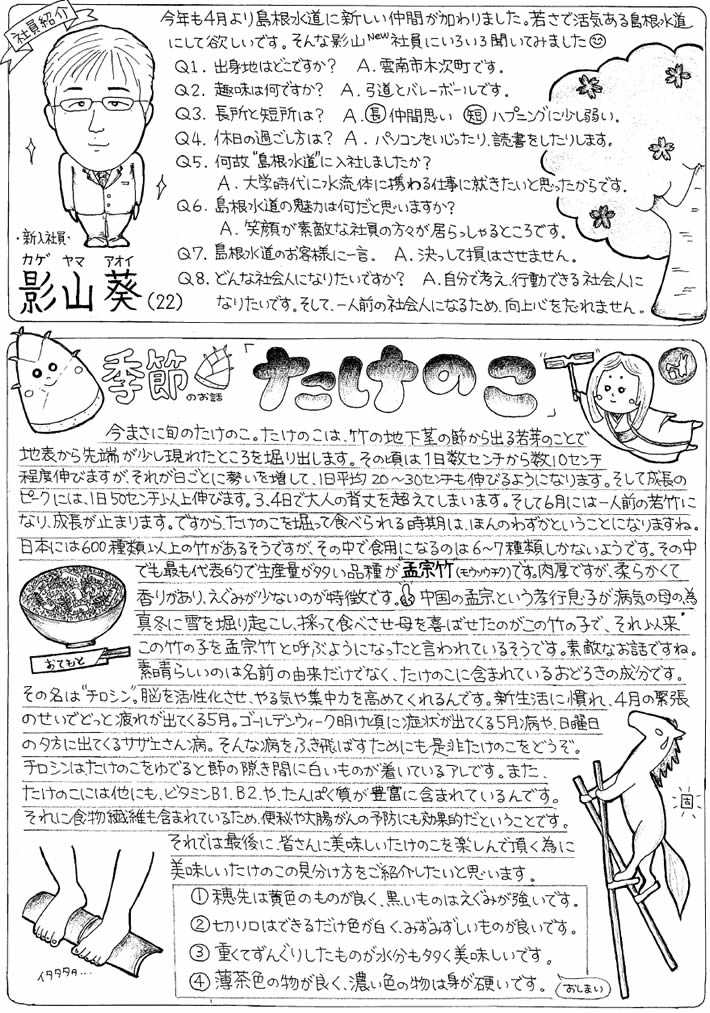 社員紹介
今年も4月より島根水道に新しい仲間が加わりました。若さで活気ある島根水道
にして欲しいです。そんな影山New社員にいろいろ聞いてみました
Q1. 出身地はどこですか? A. 雲南市木次町です。
Q2. 趣味は何ですか? A. 弓道とバレーボールです。
Q3. 長所と短所は? A. 長 仲間思い 短 ハプニングに少し弱い。
Q4. 休日の過ごし方は? A. パソコンをいじったり、読書をしたりします。
Q5. 何故“島根水道”に入社しましたか?
A. 大学時代に水流体に携わる仕事に就きたいと思ったからです。
Q6. 島根水道の魅力は何だと思いますか?
A. 笑顔が素敵な社員の方々が居らっしゃるところです。
Q7. 島根水道のお客様に一言。 A. 決って損はさせません。
Q8. どんな社会人になりたいですか? A. 自分で考え、行動できる社会人に
なりたいです。そして、一人前の社会人になるため、向上心を忘れません。
・新入社員・
カゲ ヤマ アオイ
影山 葵 (22)
季節のお話
「たけのこ」
今まさに旬のたけのこ。たけのこは、竹の地下茎の節から出る若芽のことで
地表から先端が少し現れたところを掘り出します。その頃は1日数センチから数10センチ
程度伸びますが、それが日ごとに勢いを増して、1日平均20〜30センチも伸びるようになります。そして成長の
ピークには、1日50センチ以上伸びます。3、4日で大人の背丈を超えてしまいます。そして6月には一人前の若竹に
なり、成長が止まります。ですから、たけのこを掘って食べられる時期は、ほんのわずかということになりますね。
日本には600種類以上の竹があるそうですが、その中で食用になるのは6〜7種類しかないようです。その中
でも最も代表的で生産量が多い品種が“孟宗竹(モウソウチク)です。肉厚ですが、柔らかくて
香りがあり、えぐみが少ないのが特徴です。中国の孟宗という孝行息子が病気の母の為
真冬に雪を掘り起こし、採って食べさせ母を喜ばせたのがこの竹の子で、それ以来
この竹の子を孟宗竹と呼ぶようになったと言われているそうです。素敵なお話ですね。
おてもと
素晴らしいのは名前の由来だけでなく、たけのこに含まれているおどろきの成分です。
その名は“チロシン”。脳を活性化させ、やる気や集中力を高めてくれるんです。新生活に慣れ、4月の緊張
のせいでどっと疲れが出てくる5月。ゴールデンウィーク明け頃に症状が出てくる5月病や、日曜日
の夕方に出てくるサザエさん病。そんな病をふき飛ばすためにも是非たけのこをどうぞ。
チロシンはたけのこをゆでると節の隙き間に白いものが着いているアレです。また、
たけのこには他にも、ビタミンB1、B2、や、たんぱく質が豊富に含まれているんです。
それに食物繊維も含まれているため、便秘や大腸がんの予防にも効果的だということです。
それでは最後に、皆さんに美味しいたけのこを楽しんで頂く為に
美味しいたけのこの見分け方をご紹介したいと思います。
① 穂先は黄色のものが良く、黒いものはえぐみが強いです。
② 切り口はできるだけ色が白く、みずみずしいものが良いです。
③ 重くてずんぐりしたものが水分も多く美味しいです。
④ 薄茶色の物が良く、濃い色の物は身が硬いです。
おしまい
イタタタタ...